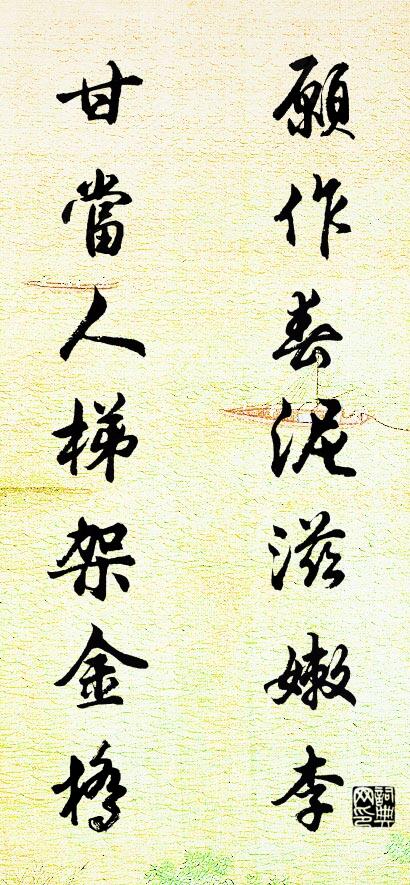 願作春泥滋嫩李
甘當人梯架金橋
詞典网印